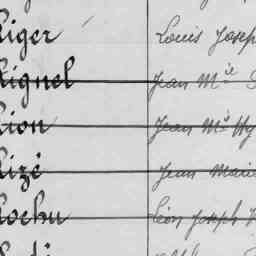 Riger Louis Josep
Rignel Jean Mie
Rion Jean Mie Hy
Rizé Jean Marie
Rochu Léon Joseph